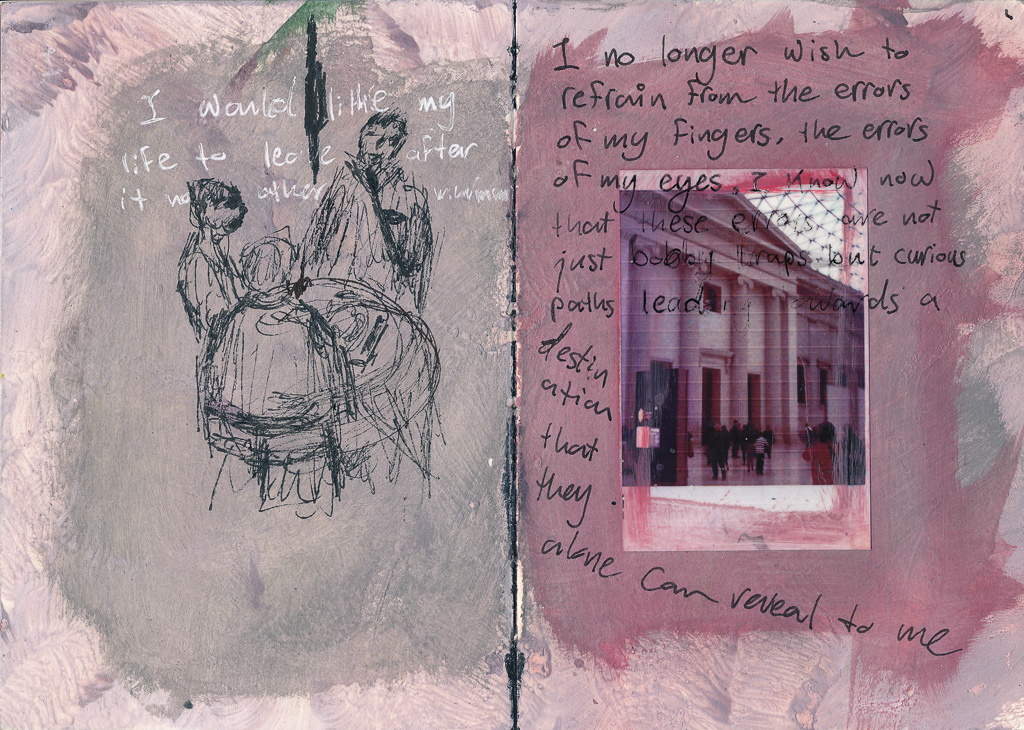 I would like my
life to leave after
it no other
I no longer wish to
refrain from the errors
of my fingers, the errors
of my eyes. I know now
that these errors are not
just bobby traps but curious
paths leading towards a
destin
ation
that
they.
alone can reveal to me